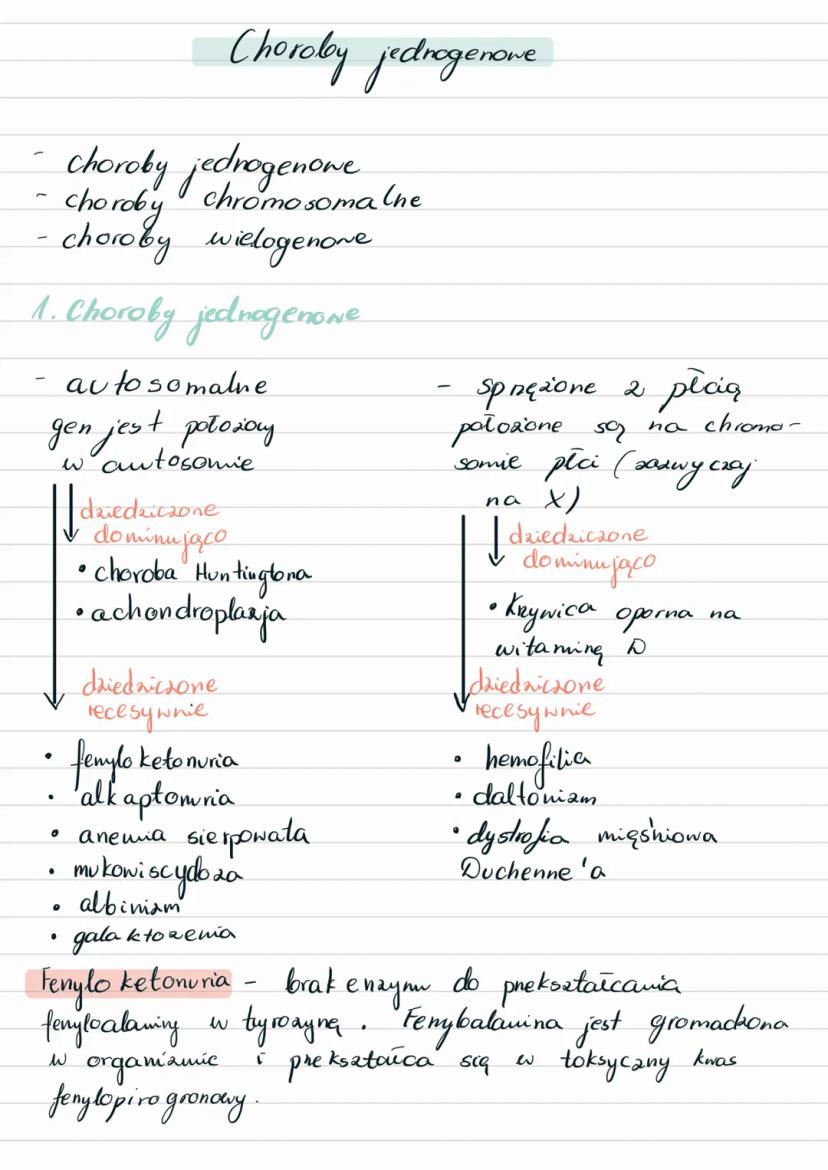 Choroby jednogenowe
- choroby jednogenowe
- choroby chromosomalne
- choroby wielogenowe
1. Choroby jednogenowe
- autosomalne
gen jest położony
w autosomie
dziedziczone
dominująco
• choroba Huntingtona
• achondroplazja
dziedziczone
recesywnie
• fenyloketonuria
• alkaptonuria
• anemia sierpowata
• mukowiscydoza
• albinizm
• galaktozemia
- sprzężone z płcią
położone są na chromo-
somie płci (zazwyczaj
na X)
dziedziczone
dominująco
• Krzywica oporna na
witaminę D
dziedziczone
recesywnie
• hemofilia
• daltonizm
• dystrofia mięśniowa
Duchenne'a
Fenyloketonuria - brak enzymu do przekształcania
fenyloalaniny w tyrozynę. Fenyloalanina jest gromadzona
w organizmie i przekształca się w toksyczny kwas
fenylopirogronowy.